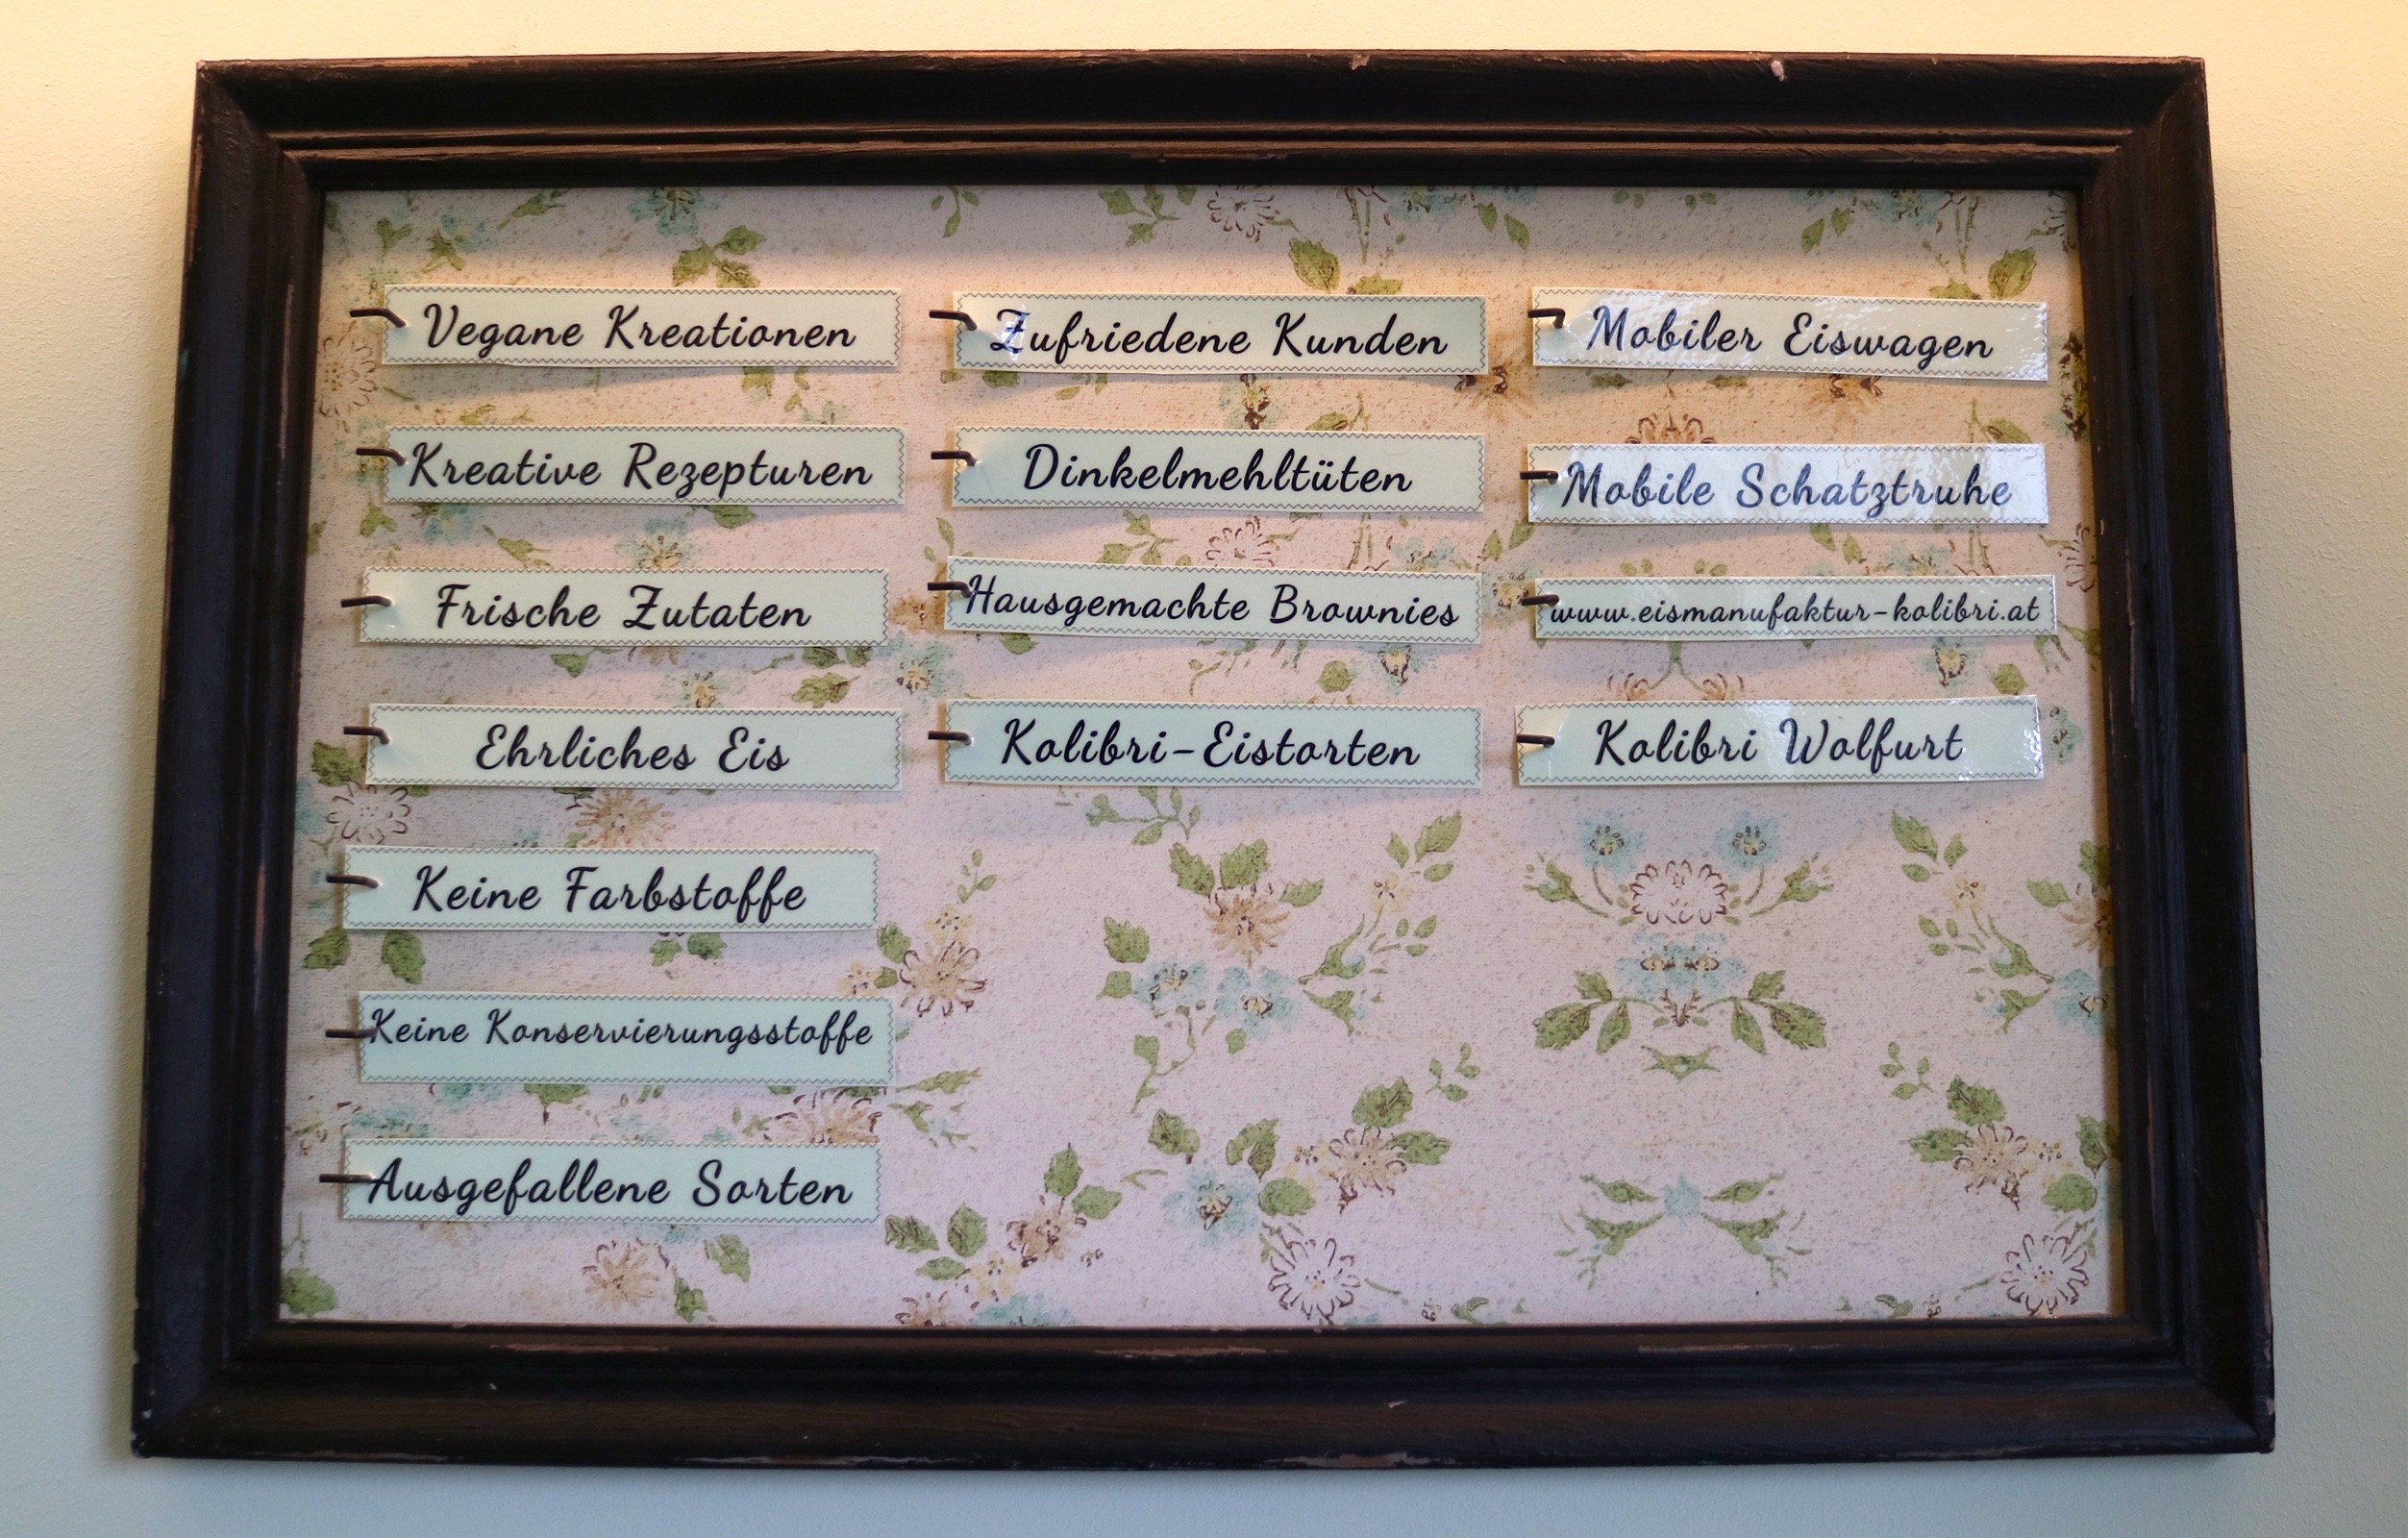 Vegane Kreationen
Kreative Rezepturen
Frische Zutaten
Ehrliches Eis
Keine Farbstoffe
Keine Konservierungsstoffe
Ausgefallene Sorten
Zufriedene Kunden
Dinkelmehltüten
Hausgemachte Brownies
Kolibri-Eistorten
Mobiler Eiswagen
Mobile Schatztruhe
www.eismanufaktur-kolibri.at
Kolibri Wolfurt